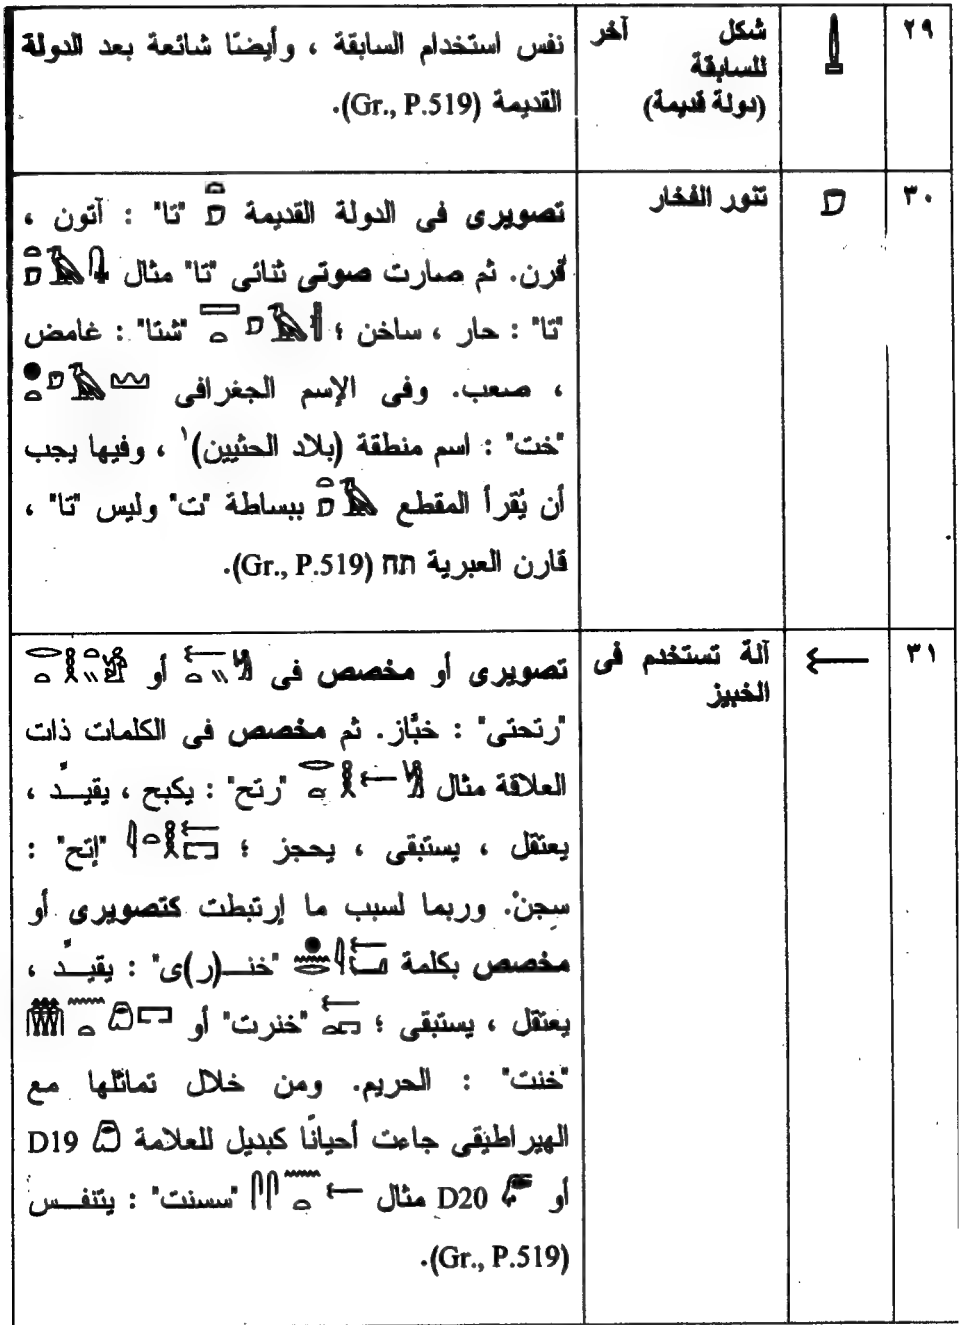 ٢٩
شكل آخر
للسابقة
(دولة قديمة)
نفس استخدام السابقة ، وأيضنًا شائعة بعد الدولة
القديمة (Gr., P.519).
٣٠
تنور الفخار
تصويرى فى الدولة القديمة "تا" : آتون ،
فرن. ثم صارت صوتى ثنائى "تا" مثال
"تا" : حار ، ساخن ؛ "شتا" : غامض
، صعب. وفى الإسم الجغرافى
"خت" : اسم منطقة (بلاد الحثيين)١ ، وفيها يجب
أن يُقرأ المقطع ببساطة "ت" وليس "تا" ،
قارن العبرية חת (Gr., P.519).
٣١
آلة تستخدم فى
الخبيز
تصويرى أو مخصص فى أو
"رتحتى" : خبَّاز. ثم مخصص فى الكلمات ذات
العلاقة مثال "رتح" : يكبح ، يقيـدَّ ،
يعتقل ، يستبقى ، يحجز ؛ "إتح" :
سجنْ. وربما لسبب ما إرتبطت كتصويرى أو
مخصص بكلمة "خنـ(ر)ى" : يقيـدَّ ،
يعتقل ، يستبقى ؛ "خنرت" أو
"خنت" : الحريم. ومن خلال تماثلها مع
الهيراطيقى جاءت أحيانًا كبديل للعلامة D19
أو D20 مثال "سسنت" : يتنفـس
(Gr., P.519).